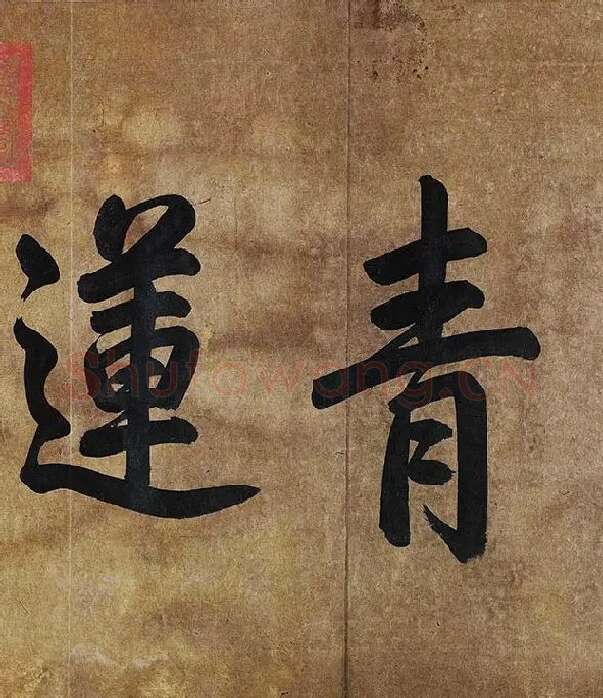 青蓮
Shufawang.CN